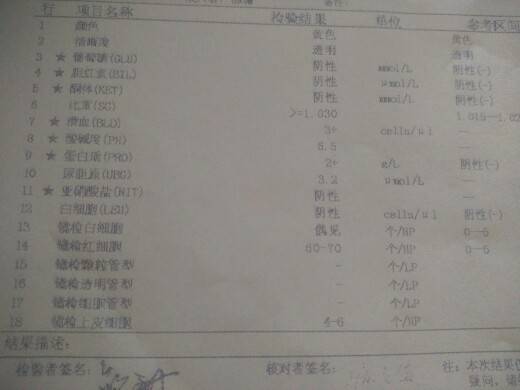 行 项目名称 检验结果 单位 参考区间
1 颜色 黄色 黄色
2 清晰度 透明 透明
3 ★ 葡萄糖(GLU) 阴性 mmol/L 阴性(-)
4 ★ 胆红素(BIL) 阴性 μmol/L 阴性(-)
5 ★ 酮体(KET) 阴性 mmol/L 阴性(-)
6 比重(SG) >=1.030 1.015—1.02
7 ★ 潜血(BLD) 3+ cells/μl —
8 ★ 酸碱度(PH) 5.5 —
9 ★ 蛋白质(PRO) 2+ g/L 阴性(-)
10 尿胆原(UBG) 3.2 μmol/L —
11 ★ 亚硝酸盐(NIT) 阴性
12 白细胞(LEU) 阴性 cells/μl 阴性(-)
13 镜检白细胞 偶见 个/HP 0—5
14 镜检红细胞 60-70 个/HP 0—5
15 镜检颗粒管型 - 个/LP
16 镜检透明管型 - 个/LP
17 镜检细胞管型 - 个/LP
18 镜检上皮细胞 4-6 个/HP
结果描述:
检验者签名: 核对者签名: 注: 本次结果仅
疑问, 请